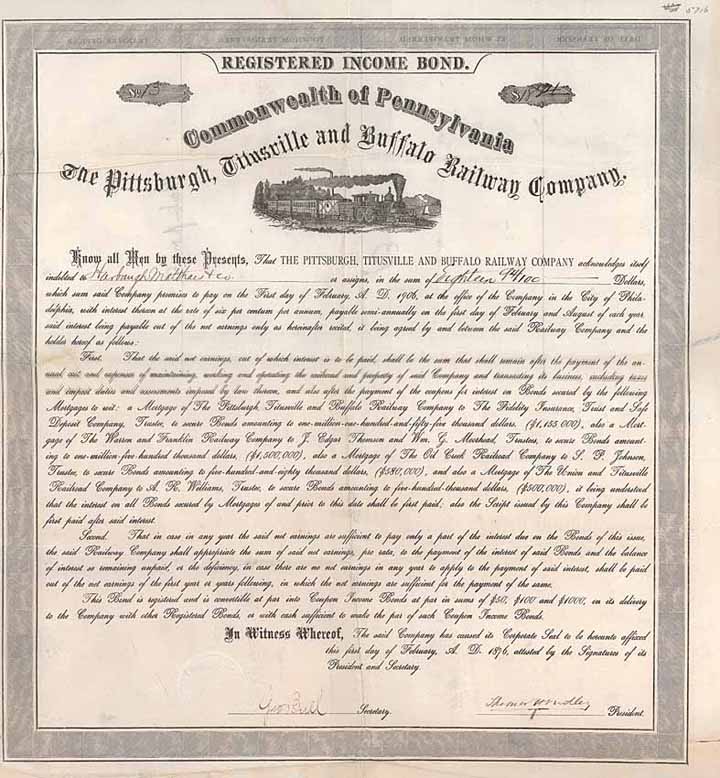 5716
DATE OF TRANSFER. BY WHOM TRANSFERRED. TO WHOM TRANSFERRED. TRANSFER OFFICER.
REGISTERED INCOME BOND.
No. 13
Commonwealth of Pennsylvania
The Pittsburgh, Titusville and Buffalo Railway Company.
Know all Men by these Presents, That THE PITTSBURGH, TITUSVILLE AND BUFFALO RAILWAY COMPANY acknowledges itself
indebted to Harbaugh Mathias & Co. or assigns, in the sum of Eighteen 94/100 Dollars,
which sum said Company promises to pay on the First day of February, A. D. 1906, at the office of the Company in the City of Phila-
delphia, with interest thereon at the rate of six per centum per annum, payable semi-annually on the first day of February and August of each year,
said interest being payable out of the net earnings only as hereinafter recited, it being agreed by and between the said Railway Company and the
holder hereof as follows:
First. That the said net earnings, out of which interest is to be paid, shall be the sum that shall remain after the payment of the an-
nual cost and expenses of maintaining, working and operating the railroad and property of said Company and transacting its business, including taxes
and impost duties and assessments imposed by law thereon, and also after the payment of the coupons for interest on Bonds secured by the following
Mortgages to wit: a Mortgage of The Pittsburgh, Titusville and Buffalo Railway Company to The Fidelity Insurance, Trust and Safe
Deposit Company, Trustee, to secure Bonds amounting to one-million-one-hundred-and-fifty-five thousand dollars, ($1,155,000), also a Mort-
gage of The Warren and Franklin Railway Company to J. Edgar Thomson and Wm. G. Moorhead, Trustees, to secure Bonds amount-
ing to one-million-five-hundred thousand dollars, ($1,500,000), also a Mortgage of The Oil Creek Railroad Company to S. P. Johnson,
Trustee, to secure Bonds amounting to five-hundred-and-eighty thousand dollars, ($580,000), and also a Mortgage of The Union and Titusville
Railroad Company to A. R. Williams, Trustee, to secure Bonds amounting to five-hundred-thousand dollars, ($500,000), it being understood
that the interest on all Bonds secured by Mortgages of and prior to this date shall be first paid; also the Script issued by this Company shall be
first paid after said interest.
Second. That in case in any year the said net earnings are sufficient to pay only a part of the interest due on the Bonds of this issue,
the said Railway Company shall appropriate the sum of said net earnings, pro rata, to the payment of the interest of said Bonds and the balance
of interest so remaining unpaid, or the deficiency, in case there are no net earnings in any year to apply to the payment of said interest, shall be paid
out of the net earnings of the first year or years following, in which the net earnings are sufficient for the payment of the same.
This Bond is registered and is convertible at par into Coupon Income Bonds at par in sums of $50, $100 and $1000, on its delivery
to the Company with other Registered Bonds, or with cash sufficient to make the par of such Coupon Income Bonds.
In Witness Whereof, The said Company has caused its Corporate Seal to be hereunto affixed
this first day of February, A. D. 1876, attested by the Signatures of its
President and Secretary.
Geo Bull Secretary. President.